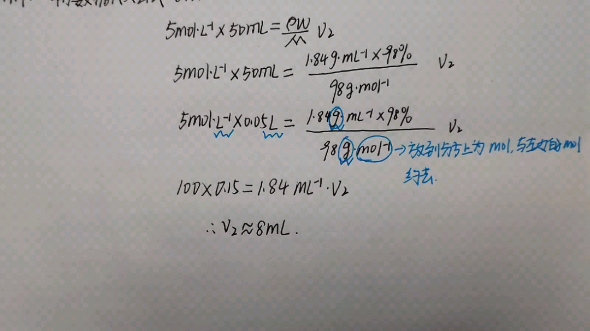 5mol·L⁻¹×50mL=ρw/M V₂
5mol·L⁻¹×50mL=1.84g·mL⁻¹×98%/98g·mol⁻¹ V₂
5mol·L⁻¹×0.05L=1.84g·mL⁻¹×98%/98g·mol⁻¹ V₂
→放到分子上为mol,与左边的mol
约去.
100×0.15=1.84mL⁻¹·V₂
∴V₂≈8mL.